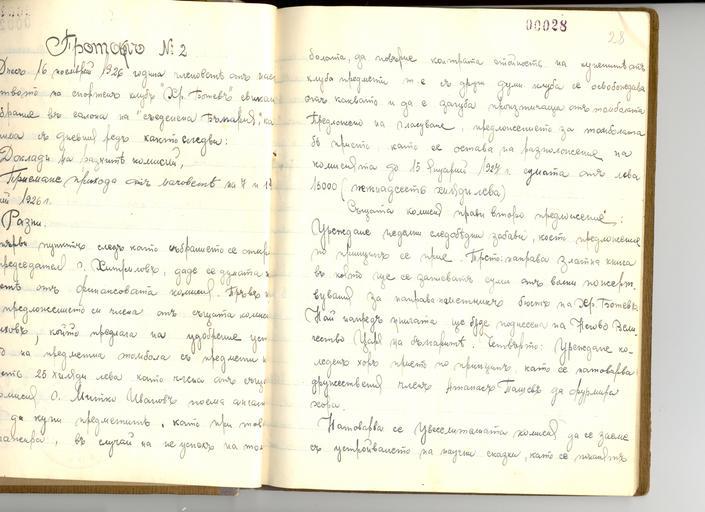 Протоколъ № 2
Днесъ 16 ноемврий 1926 година членоветѣ отъ нас
ството на спортенъ клубъ "Хр. Ботевъ" свикан
събрание въ салона на "Съединена България", ка
следния дневенъ редъ както следва:
Доклади на разнитѣ комисии,
Приемане прихода отъ мачоветѣ на 7 и 14
ий 1926 г.
Разни.
първи пунктъ следъ като събранието се откри
председателя г. Хитриловъ, даде се думата н
отъ финансовата комисия. Първо
предложението си члена отъ сѫщата комис
иловъ, който предлага на удобрение
на предметна томбола съ предмети
25 хиляди лева като члена отъ същ
комисия г. Митко Ивановъ поема
да купи предметитѣ, като при тов
въ случай на не успехъ на том
00028
28
болата, да повърне контрата стойность на купенитѣ отъ
клуба предмети т. е. съ други думи клуба се освобождава
отъ каквато и да е загуба произтичаща отъ томболата
Предложено на гласуване, предложението за томболата
бѣ прието, като се остава на разположение на
комисията до 15 Януарий 1927 г. сумата отъ лева
15000 (петнадесеть хиляди лева)
Същата комисия прави второ предложение:
Уреждане неделни следобедни забави, което предложение
по принципъ се прие. Трето: направа златна книга
въ която ще се записватъ суми отъ волни пожерт-
вувания за направа паметникъ бюстъ на Хр. Ботевъ.
Най напредъ книгата ще бѫде поднесена на Негово Вели-
чество Царя на българитѣ. Четвърто: Уреждане ко-
леденъ хоръ прието по принципъ, като се натоварва
дружествения членъ Атанасъ Пашевъ да формира
хора.
Натоварва се Увеселителната комисия да се заеме
съ устройването на научни сказки, като се поканятъ